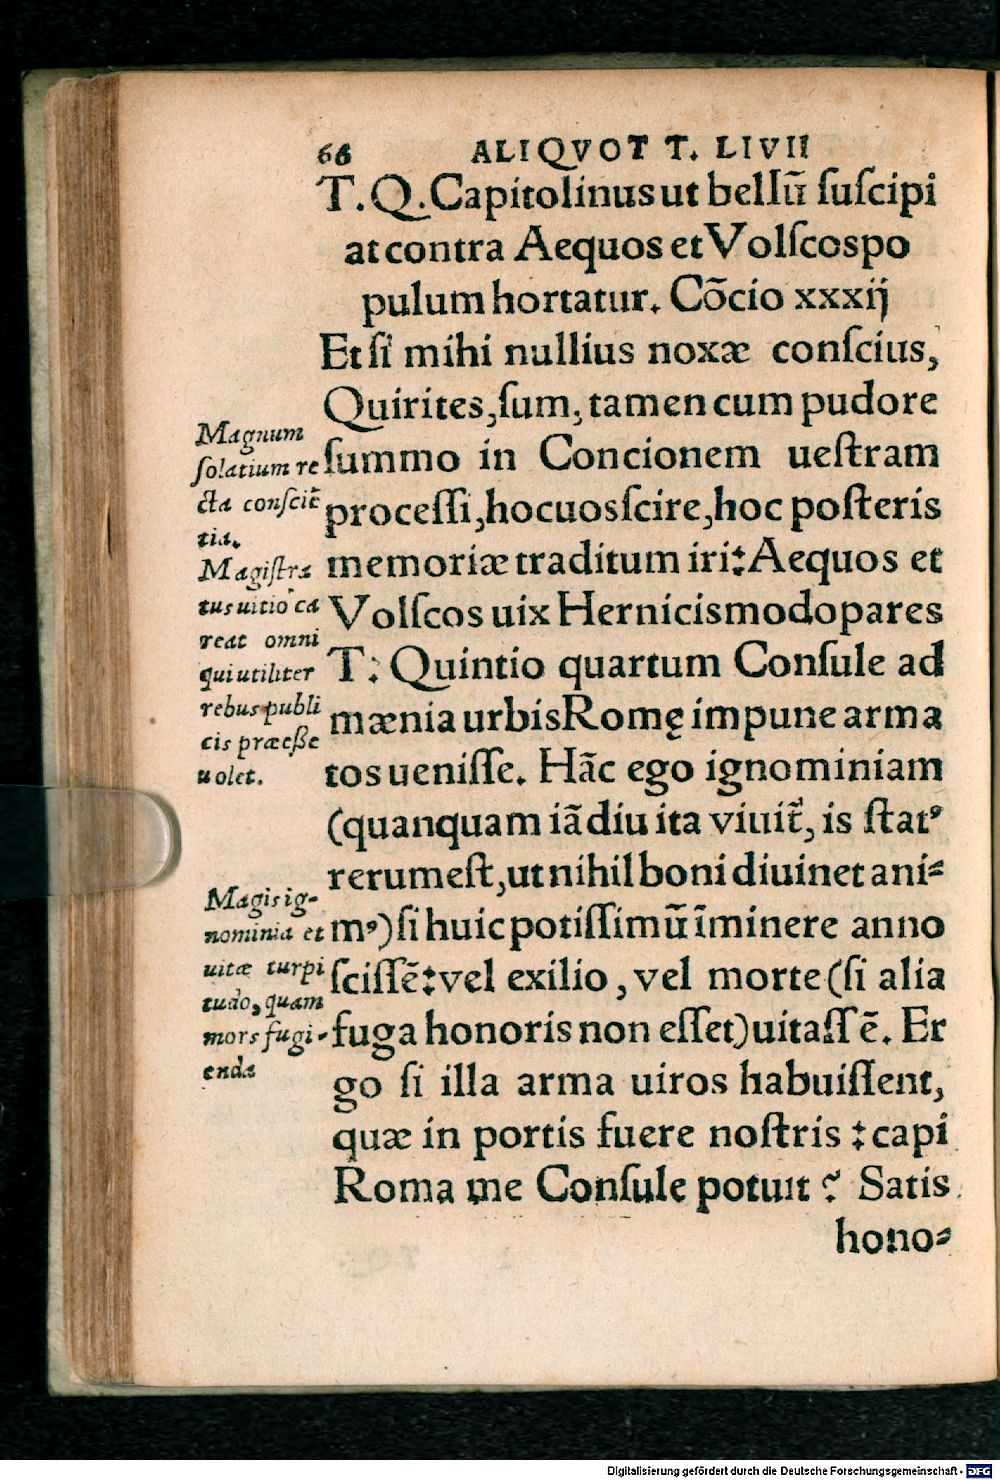 66 ALIQVOT T. LIVII
T. Q. Capitolinus ut bellū ſuſcipi
at contra Aequos et Volſcos po
pulum hortatur. Cōcio xxxij
Et ſi mihi nullius noxæ conſcius,
Quirites, ſum, tamen cum pudore
ſummo in Concionem ueſtram
proceſſi, hoc uos ſcire, hoc poſteris
memoriæ traditum iri: Aequos et
Volſcos uix Hernicis modo pares
T: Quintio quartum Conſule ad
mænia urbis Romę impune arma
tos ueniſſe. Hāc ego ignominiam
(quanquam iā diu ita viuit̃, is ſtatꝰ
rerum eſt, ut nihil boni diuinet ani⸗
mꝰ) ſi huic potiſſimū īminere anno
ſciſſē: vel exilio, vel morte (ſi alia
fuga honoris non eſſet) uitaſſē. Er
go ſi illa arma uiros habuiſſent,
quæ in portis fuere noſtris: capi
Roma me Conſule potuit? Satis
hono⸗
Magnum
ſolatium re
cta conſciē
tia.
Magiſtra
tus uitio ca
reat omni
qui utiliter
rebus publi
cis præeſſe
uolet.
Magis ig-
nominia et
uitæ turpi
tudo, quam
mors fugi-
enda
Digitalisierung gefördert durch die Deutsche Forschungsgemeinschaft - DFG